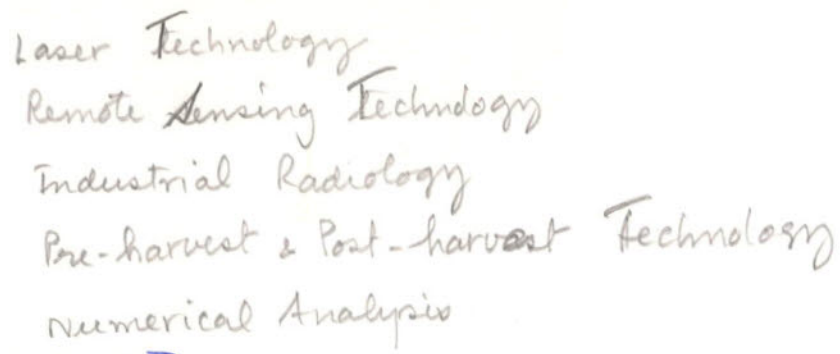 Laser Technology
Remote Sensing Technology
Industrial Radiology
Pre-harvest & Post-harvest Technology
Numerical Analysis